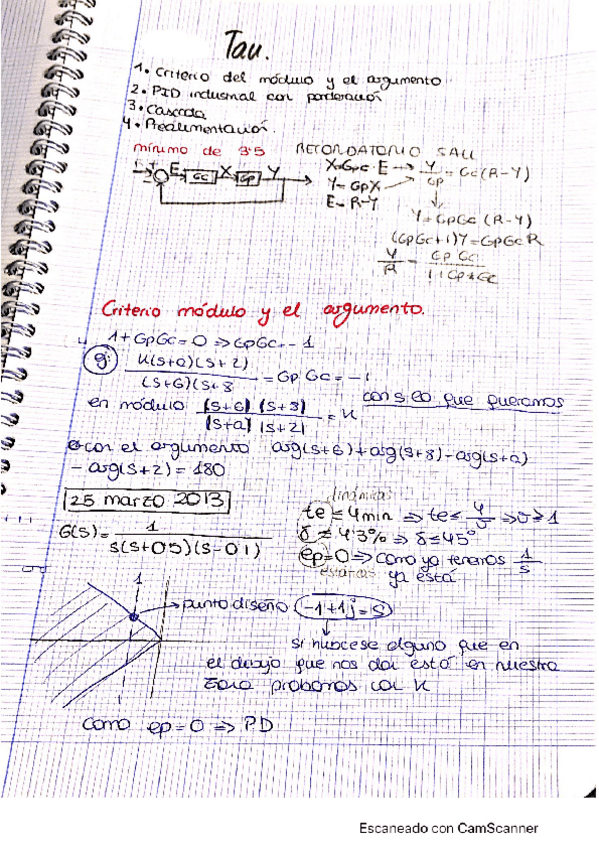 Tau.
1. Criterio del módulo y el argumento
2. PID industrial con ponderación
3. Cascada
4. Prealimentación.
mínimo de 3.5 RECORDATORIO
E Gc X Gp Y
X=Gc·E → Y/Gp = Gc(R-Y)
Y=GpX
E=R-Y
Y=GpGc(R-Y)
(GpGc+1)Y=GpGcR
Y/R = GpGc/1+Gp*Gc
Criterio módulo y el argumento.
1+GpGc=0 ⇒ GpGc=-1
g: K(s+a)(s+2)/(s+6)(s+8 = GpGc=-1
en módulo |s+6||s+8|/|s+a||s+2| = K con s lo que queramos
con el argumento arg(s+6)+arg(s+8)-arg(s+a)
-arg(s+2)=180
25 marzo 2013
dinámicas
G(s)= 1/s(s+0.5)(s-0.1)
te ≤ 4min ⇒ te ≤ 4/σ ⇒ σ ≥ 1
δ ≤ 4.3% ⇒ δ ≤ 45°
ep=0 ⇒ como ya tenemos 1/s
estática ya está
1
punto diseño -1+1j=s
si hubiese alguno que en
el dibujo que nos da está en nuestra
zona probamos con K
como ep=0 ⇒ PD
Escaneado con CamScanner